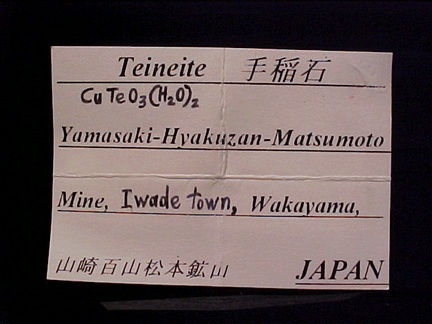 Teineite 手稲石
CuTeO3(H2O)2
Yamasaki-Hyakuzan-Matsumoto
Mine, Iwade town, Wakayama,
山崎百山松本鉱山 JAPAN